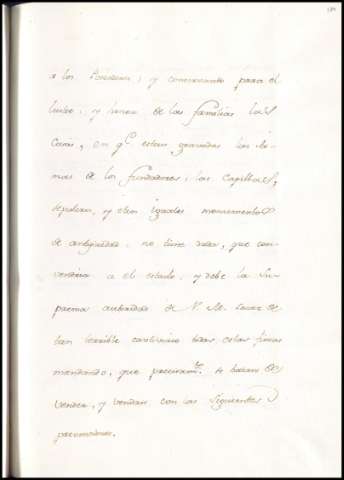 a los Poseedores; y conveniente para el
lustre, y honor de las familias las
Casas, en q.e estan gravadas las Ar-
mas de los fundadores, las Capillas,
sepulcros, y otros iguales monumentos
de antiguedad: no tiene duda, que con-
vendria a el estado, y debe la Su-
prema autoridad de V. M. sacar de
tan terrible cautiverio todas estas fincas
mandando, que precisam.te se hayan de
vender, y vendan con las siguientes
precauciones.